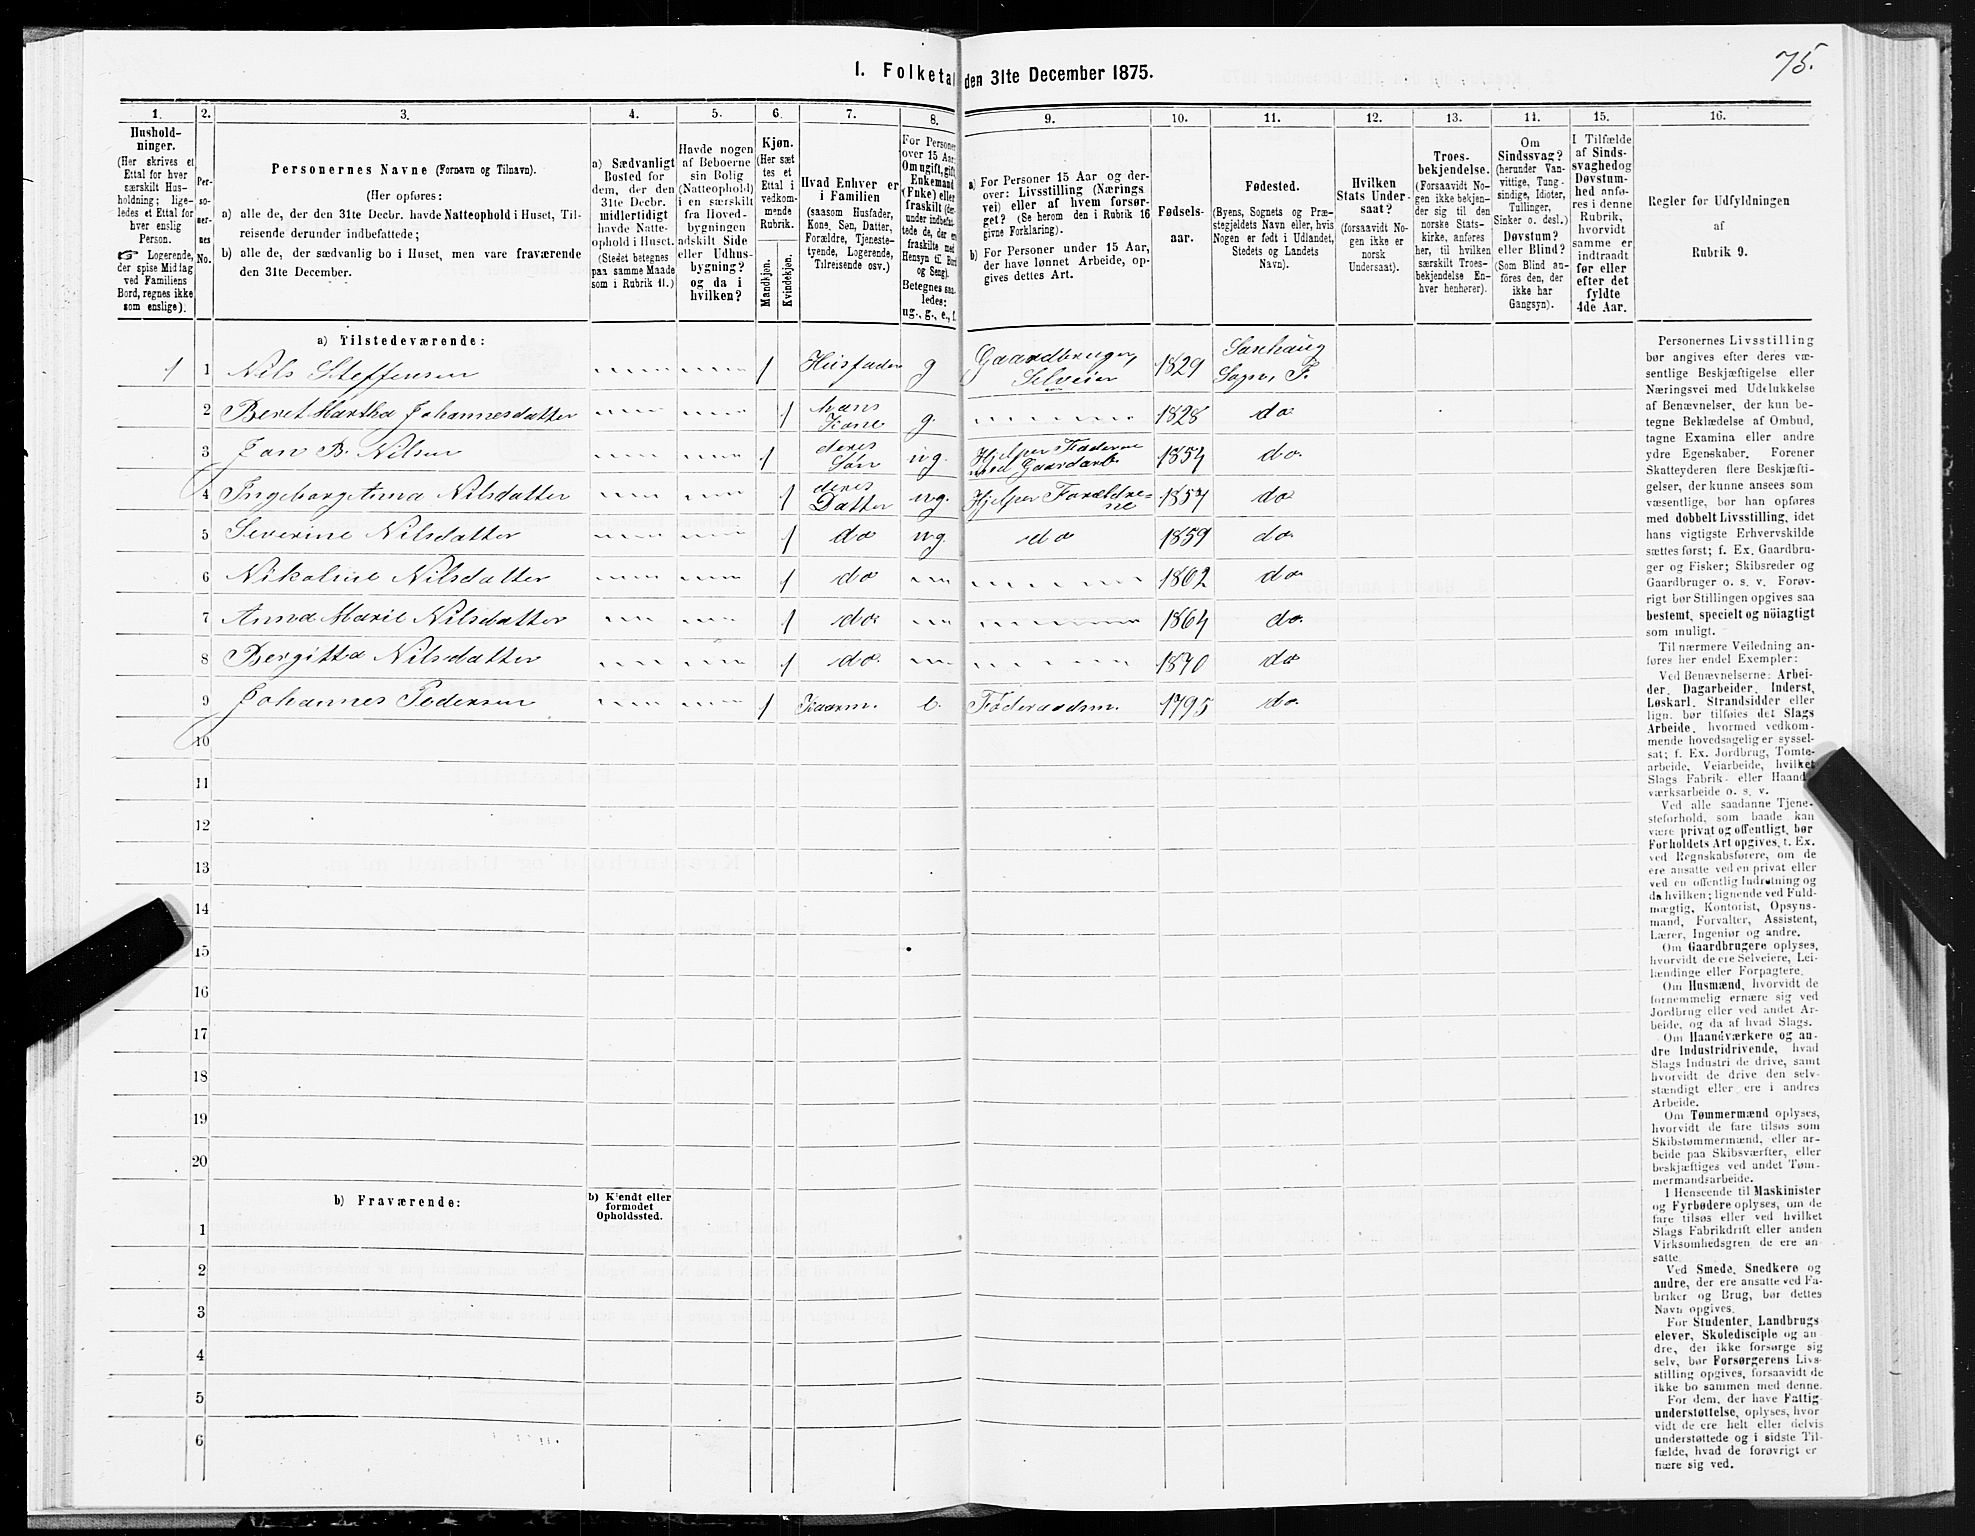 75.
I. Folketal den 31te December 1875.
1. 2. 3. 4. 5. 6. 7. 8. 9. 10. 11. 12. 13. 14. 15. 16.
Hushold-
ninger.
(Her skrives et
Ettal for hver
særskilt Hus-
holdning; lige-
ledes et Ettal for
hver enslig
Person.
☞ Logerende,
der spise Middag
ved Familiens
Bord, regnes ikke
som enslige).
Per-
so-
ner-
nes
No.
Personernes Navne (Fornavn og Tilnavn).
(Her opføres:
a) alle de, der den 31te Decbr. havde Natteophold i Huset, Til-
reisende derunder indbefattede;
b) alle de, der sædvanlig bo i Huset, men vare fraværende
den 31te December.
a) Sædvanligt
Bosted for
dem, der den
31te Decbr.
midlertidigt
havde Natte-
ophold i Huset.
(Stedet betegnes
paa samme Maade
som i Rubrik 11.)
Havde nogen
af Beboerne
sin Bolig
(Natteophold)
i en særskilt
fra Hoved-
bygningen
adskilt Side
eller Udhus-
bygning?
og da i
hvilken?
Kjøn.
(Her sæt
tes et
Ettal i
vedkom-
mende
Rubrik.
Mandkjøn.
Kvindekjøn.
Hvad Enhver er
i Familien
(saasom Husfader,
Kone, Søn, Datter,
Forældre, Tjeneste-
tyende, Logerende,
Tilreisende osv.)
For Personer
over 15 Aar:
Om ugift, gift,
Enkemand
(Enke) eller
fraskilt (der-
under indbefat-
tede de, der ere
fraskilte med
Hensyn til Bord
og Seng).
Betegnes saa-
ledes:
ug., g., e., f.
a) For Personer 15 Aar og der-
over: Livsstilling (Nærings
vei) eller af hvem forsør-
get? (Se herom den i Rubrik 16
givne Forklaring).
b) For Personer under 15 Aar,
der have lønnet Arbeide, op-
gives dettes Art.
Fødsels-
aar.
Fødested.
(Byens, Sognets og Præ-
stegjeldets Navn eller, hvis
Nogen er født i Udlandet,
Stedets og Landets
Navn).
Hvilken
Stats Under-
saat?
(forsaavidt No-
gen ikke er
norsk
Undersaat).
Troes-
bekjendelse.
(Forsaavidt No-
gen ikke bekjen-
der sig til den
norske Stats-
kirke, anføres
her, til hvilken
særskilt Troes-
bekjendelse En-
hver henhører).
Om
Sindssvag?
(herunder Van-
vittige, Tung-
sindige, Idioter,
Tullinger,
Sinker o. desl.)
Døvstum?
eller Blind?
(Som Blind an-
føres den, der
ikke har
Gangsyn).
I Tilfælde
af Sinds-
svaghed og
Døvstum-
hed anfø-
res i denne
Rubrik,
hvorvidt
samme er
indtraadt
før eller
efter det
fyldte
4de Aar.
Regler for Udfyldningen
af
Rubrik 9.
a) Tilstedeværende:
1 1 Nils Steffensen 1 Husfader g Gaardbruger, Selveier 1829 Saxhaug Sogn, P.
2 Beret Martha Johannesdatter 1 hans Kone g. 1828 do
3 Jon B. Nilsen 1 deres Søn ug. Hjelper Faderen med Gaardarb. 1854 do.
4 Ingeborg Anna Nilsdatter 1 deres Datter ug. Hjelper Forældrene 1857 do
5 Severine Nilsdatter 1 do ug do 1859 do.
6 Nikoline Nilsdatter 1 do 1862 do.
7 Anna Marie Nilsdatter 1 do. 1864 do.
8 Bergitta Nilsdatter 1 do. 1870 do
9 Johannes Pedersen 1 Kaarm. e. Føderaadsm. 1795 do.
10
11
12
13
14
15
16
17
18
19
20
b) Fraværende:
b) Kjendt eller
formodet
Opholdssted.
1
2
3
4
5
6
Personernes Livsstilling
bør angives efter deres væ-
sentlige Beskjæftigelse eller
Næringsvei med Udelukkelse
af Benævnelser, der kun be-
tegne Beklædelse af Ombud,
tagne Examina eller andre
ydre Egenskaber. Forener
Skatteyderen flere Beskjæfti-
gelser, der kunne ansees som
væsentlige, bør han opføres
med dobbelt Livsstilling, idet
hans vigtigste Erhvervskilde
sættes først; f. Ex. Gaardbru-
ger og Fisker; Skibsreder og
Gaardbruger o. s. v. Forøv-
rigt bør Stillingen opgives saa
bestemt, specielt og nöiagtigt
som muligt.
Til nærmere Veiledning an-
føres her endel Exempler:
Ved Benævnelserne: Arbei-
der, Dagarbeider, Inderst,
Løskarl, Strandsidder eller
lign. bør tilføies det Slags
Arbeide, hvormed vedkom-
mende hovedsagelig er syssel-
sat; f. Ex. Jordbrug, Tomte-
arbeide, Veiarbeide, hvilket
Slags Fabrik- eller Haand-
værksarbeide o. s. v.
Ved alle saadanne Tjene-
steforhold, som baade kan
være privat og offentligt, bør
Forholdets Art opgives, t. Ex.
ved Regnskabsførere, om de
ere ansatte ved en privat eller
ved en offentlig Indretning og
da hvilken; lignende ved Fuld-
mægtig, Kontorist, Opsyns-
mand, Forvalter, Assistent,
Lærer, Ingeniør og andre.
Om Gaardbrugere oplyses,
hvorvidt de ere Selveiere, Lei-
lændinge eller Forpagtere.
Om Husmænd, hvorvidt de
fornemmelig ernære sig ved
Jordbrug eller ved andet Ar-
beide, og da af hvad Slags.
Om Haandværkere og an-
dre Industridrivende, hvad
Slags Industri de drive, samt
hvorvidt de drive den selv-
stændigt eller ere i andres
Arbeide.
Om Tømmermænd oplyses,
hvorvidt de fare tilsøs som
Skibstømmermænd, eller ar-
beide paa Skibsværfter, eller
beskjæftiges ved andet Tøm-
mermandsarbeide.
I Henseende til Maskinister
og Fyrbødere oplyses, om de
fare tilsøs eller ved hvilket
Slags Fabrikdrift eller anden
Virksomhedsgren de ere an-
satte.
Ved Smede, Snedkere og
andre, der ere ansatte ved Fa-
briker og Brug, bør dettes
Navn opgives.
For Studenter, Landbrugs
elever, Skoledisciple og an-
dre, der ikke forsørge sig
selv, bør Forsørgerens Livs-
stilling opgives, forsaavidt de
ikke bo sammen med denne.
For dem, der have Fattig-
understøttelse, oplyses, hvor
vidt de ere helt eller delvis
understøttede og i sidste Til-
fælde, hvad de forøvrigt er
nære sig ved.